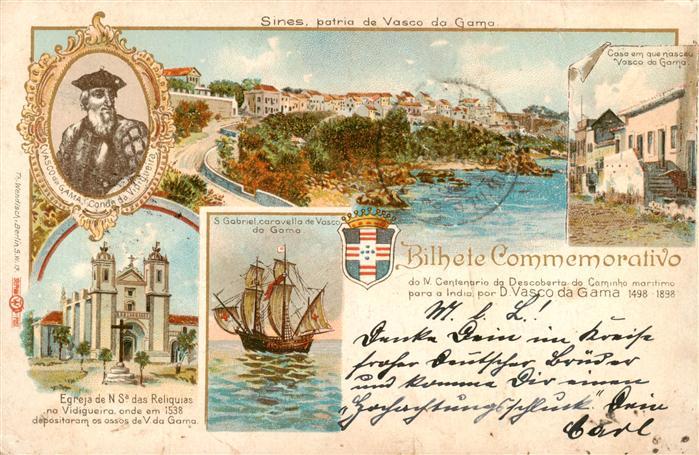 Sines, patria de Vasco da Gama.
Casa em que nasceu
Vasco da Gama.
VASCO da GAMA, Conde da Vidigueira
Th. Wendisch, Berlin S.W. 13.
S. Gabriel, caravella de Vasco
da Gama
Bilhete Commemorativo
do IV. Centenario da Descoberta do Caminho maritimo
para a India, por D. Vasco da Gama 1498-1898
Egreja de N Sª das Reliquias
na Vidigueira, onde em 1538
depositaram os ossos de V. da Gama.
M. l. L.!
Denke Dein im Kreise
froher Deutscher Brüder
und komme Dir einen
"Hochachtungsschluck". Dein
Carl